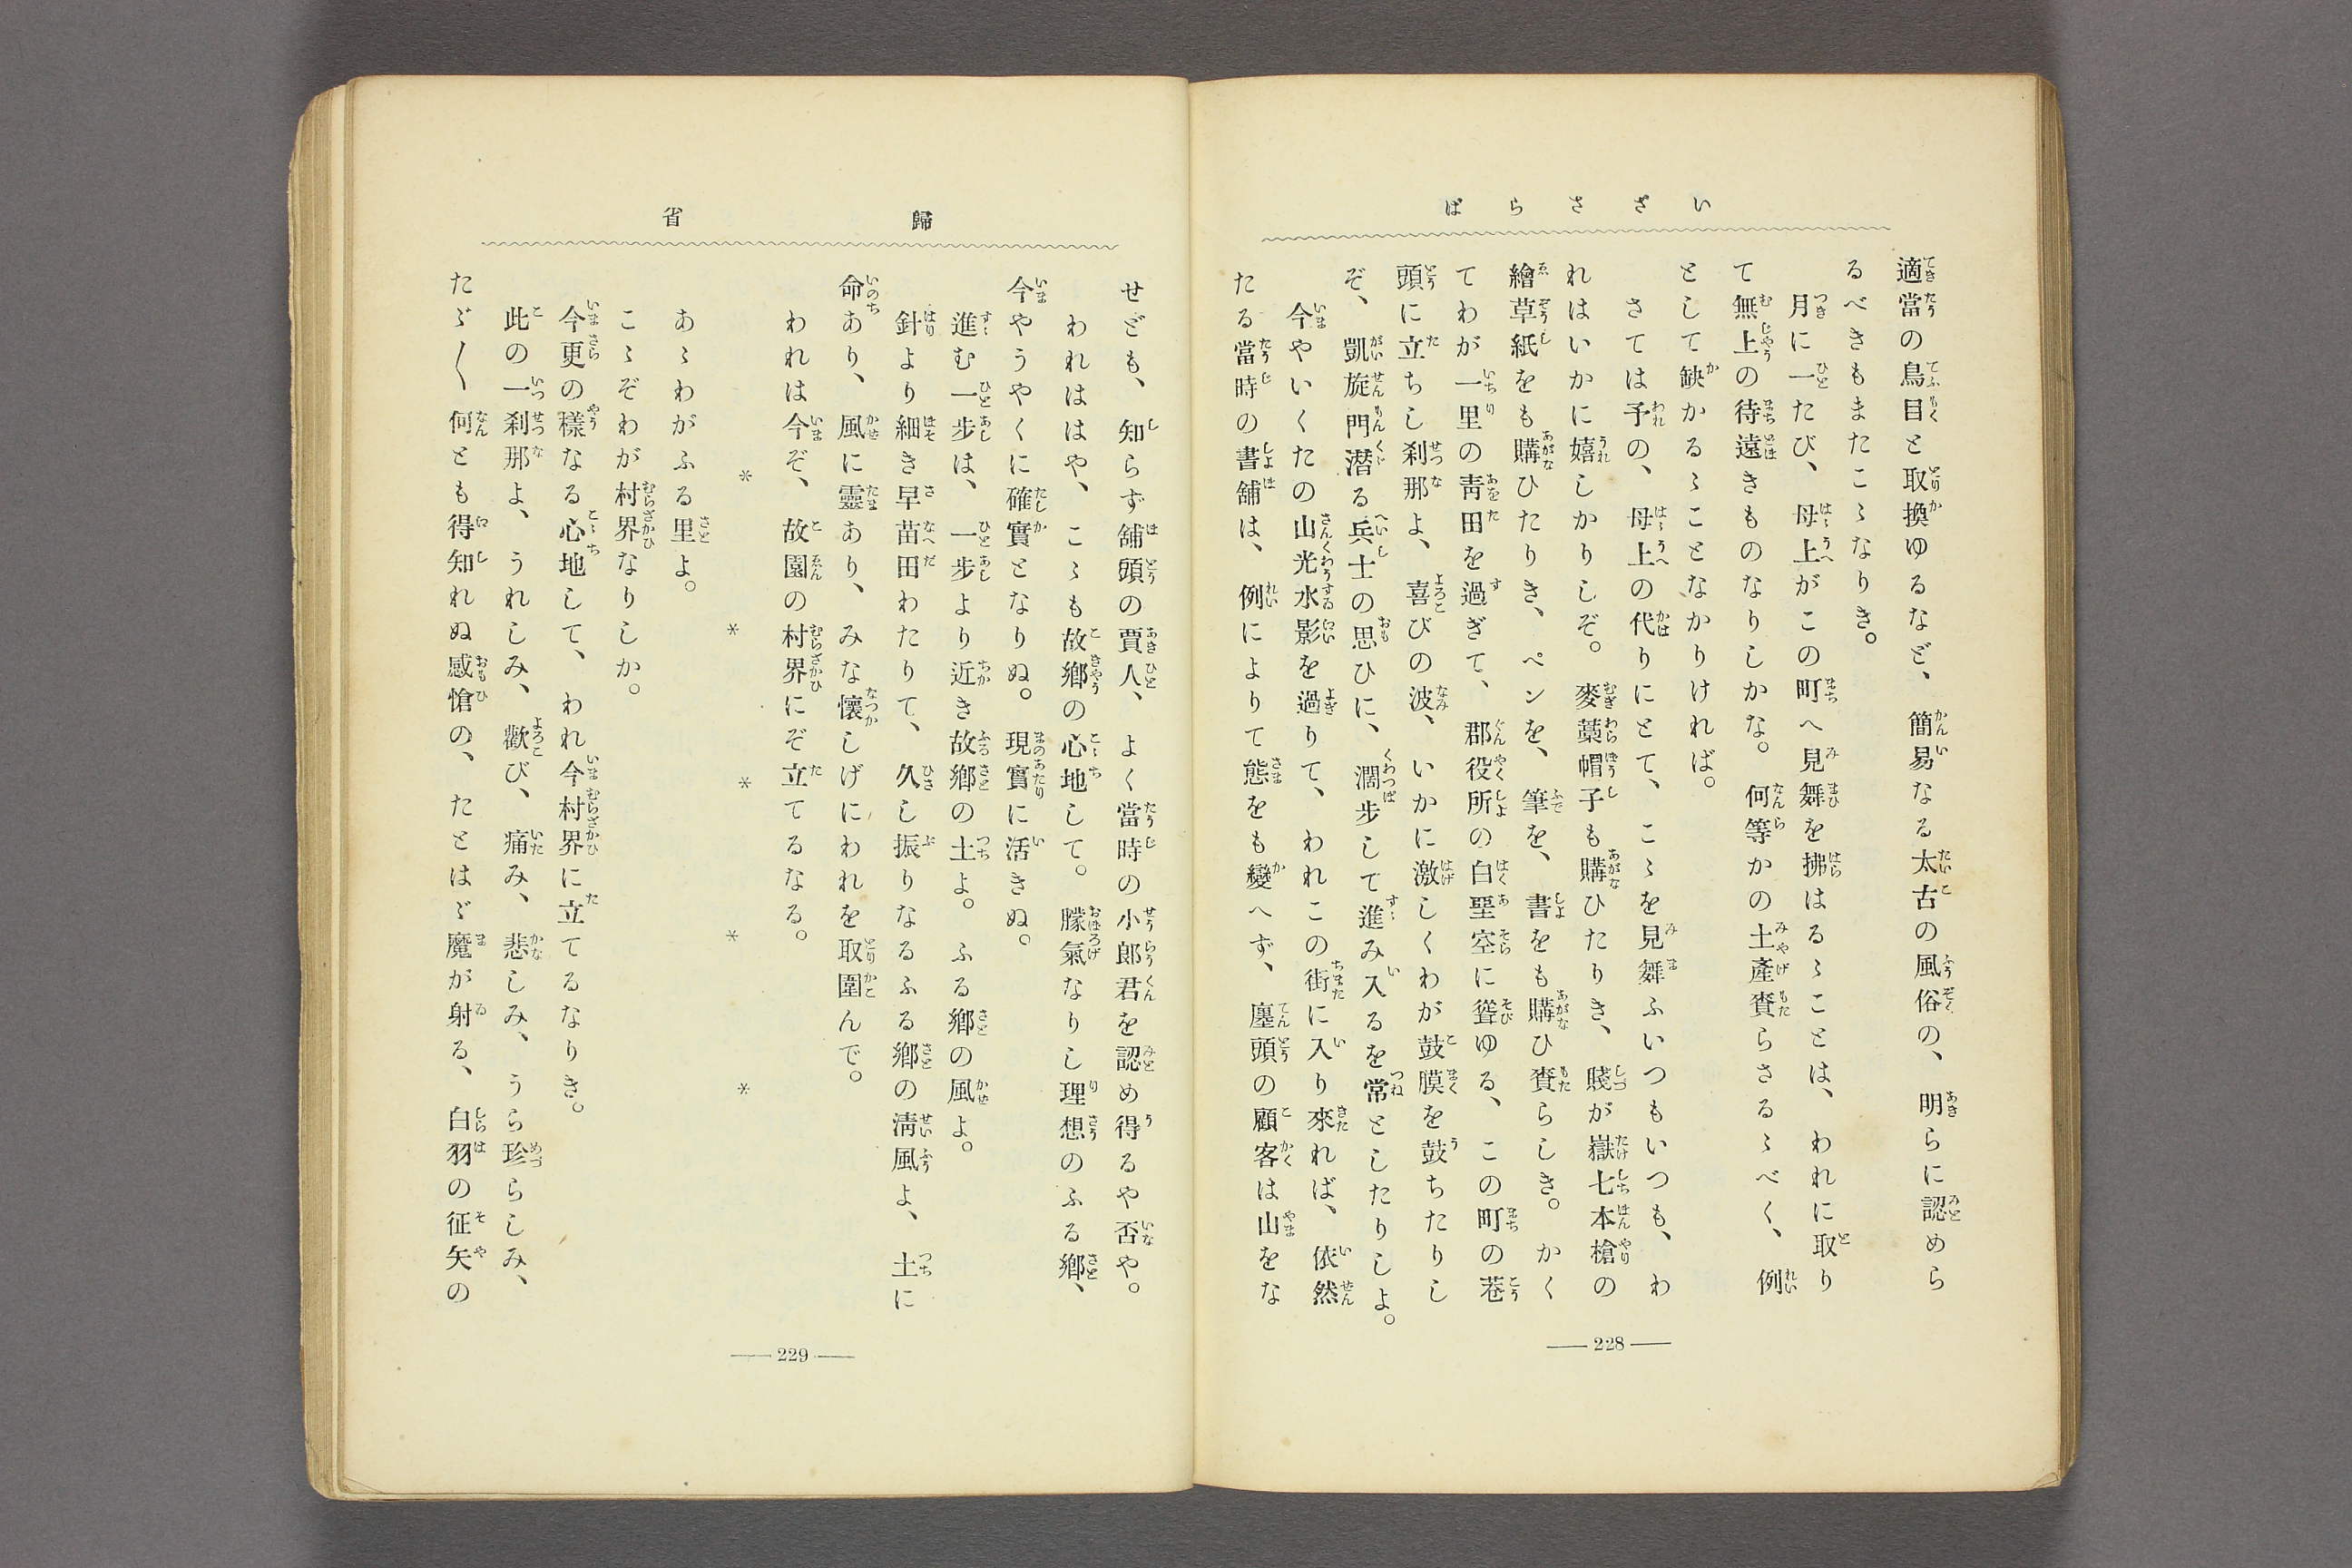 いざさらば
適當の鳥目と取換ゆるなど、簡易なる太古の風俗の、明らに認めら
るべきもまたこゝなりき。
月に一たび、母上がこの町へ見舞を拂はるゝことは、われに取り
て無上の待遠きものなりしかな。何等かの土產賚らさるゝべく、例
として缺かるゝことなかりければ。
さては予の、母上の代りにとて、こゝを見舞ふいつもいつも、わ
れはいかに嬉しかりしぞ。麥藁帽子も購ひたりき、賤が嶽七本槍の
繪草紙をも購ひたりき、ペンを、筆を、書をも購ひ賚らしき。かく
てわが一里の靑田を過ぎて、郡役所の白堊空に聳ゆる、この町の巷
頭に立ちし刹那よ、喜びの波、いかに激しくわが鼓膜を鼓ちたりし
ぞ、凱旋門潜る兵士の思ひに、濶步して進み入るを常としたりしよ。
今やいくたの山光水影を過りて、われこの街に入り來れば、依然
たる當時の書舖は、例によりて態をも變へず、廛頭の顧客は山をな
— 228 —
歸省
せども、知らず舖頭の賈人、よく當時の小郞君を認め得るや否や。
われははや、こゝも故鄕の心地して。朦氣なりし理想のふる鄕、
今やうやくに確實となりぬ。現實に活きぬ。
進む一步は、一步より近き故鄕の土よ。ふる鄕の風よ。
針より細き早苗田わたりて、久し振りなるふる鄕の淸風よ、土に
命あり、風に靈あり、みな懷しげにわれを取圍んで。
われは今ぞ、故園の村界にぞ立てるなる。
* * * * *
あゝわがふる里よ。
こゝぞわが村界なりしか。
今更の樣なる心地して、われ今村界に立てるなりき。
此の一刹那よ、うれしみ、歡び、痛み、悲しみ、うら珍らしみ、
たゞ〳〵何とも得知れぬ感愴の、たとはゞ魔が射る、白羽の征矢の
— 229 —